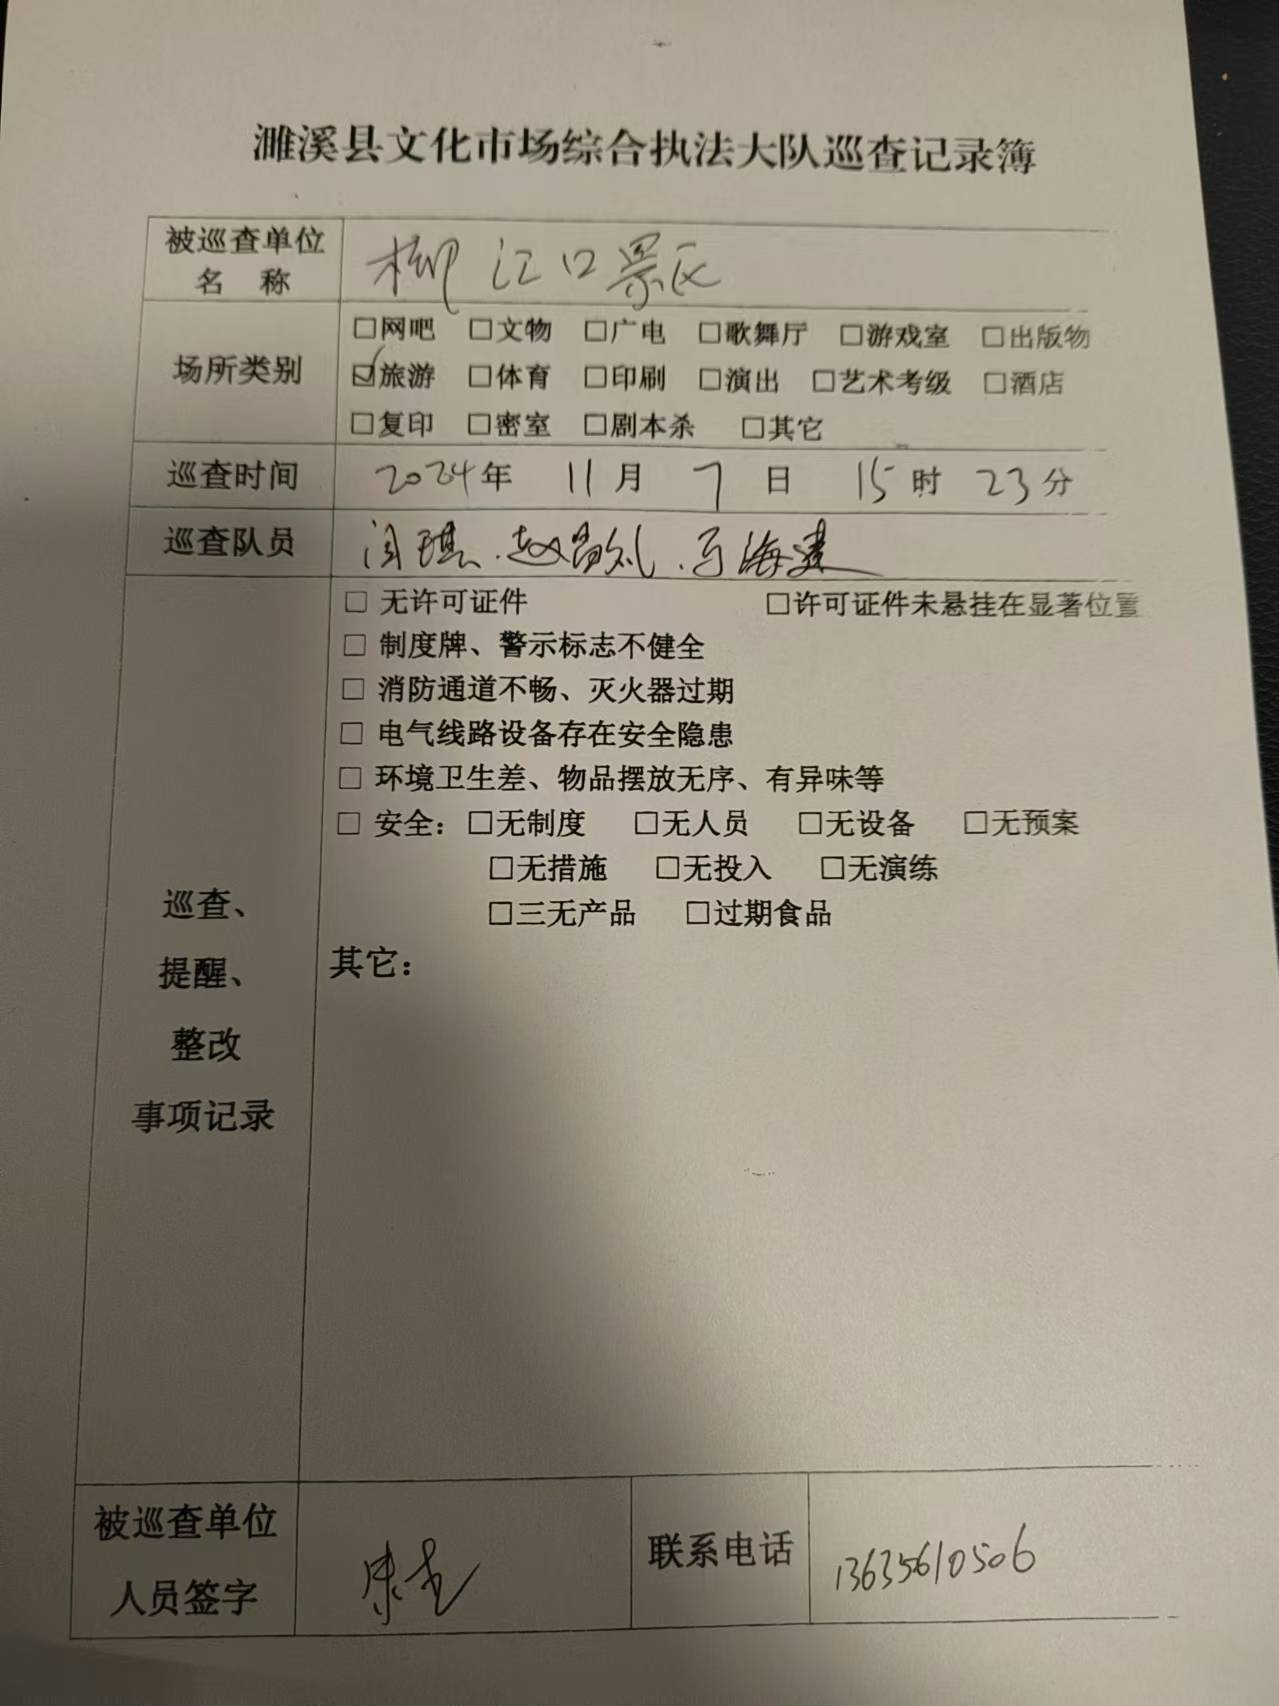 濉溪县文化市场综合执法大队巡查记录簿
被巡查单位
名 称
柳江口景区
场所类别
□网吧 □文物 □广电 □歌舞厅 □游戏室 □出版物
☑旅游 □体育 □印刷 □演出 □艺术考级 □酒店
□复印 □密室 □剧本杀 □其它
巡查时间
2024年 11月 7日 15时 23分
巡查队员
海建
□ 无许可证件 □许可证件未悬挂在显著位置
□ 制度牌、警示标志不健全
□ 消防通道不畅、灭火器过期
□ 电气线路设备存在安全隐患
□ 环境卫生差、物品摆放无序、有异味等
□ 安全：□无制度 □无人员 □无设备 □无预案
□无措施 □无投入 □无演练
□三无产品 □过期食品
巡查、
提醒、
整改
事项记录
其它：
被巡查单位
人员签字
联系电话
13635610506